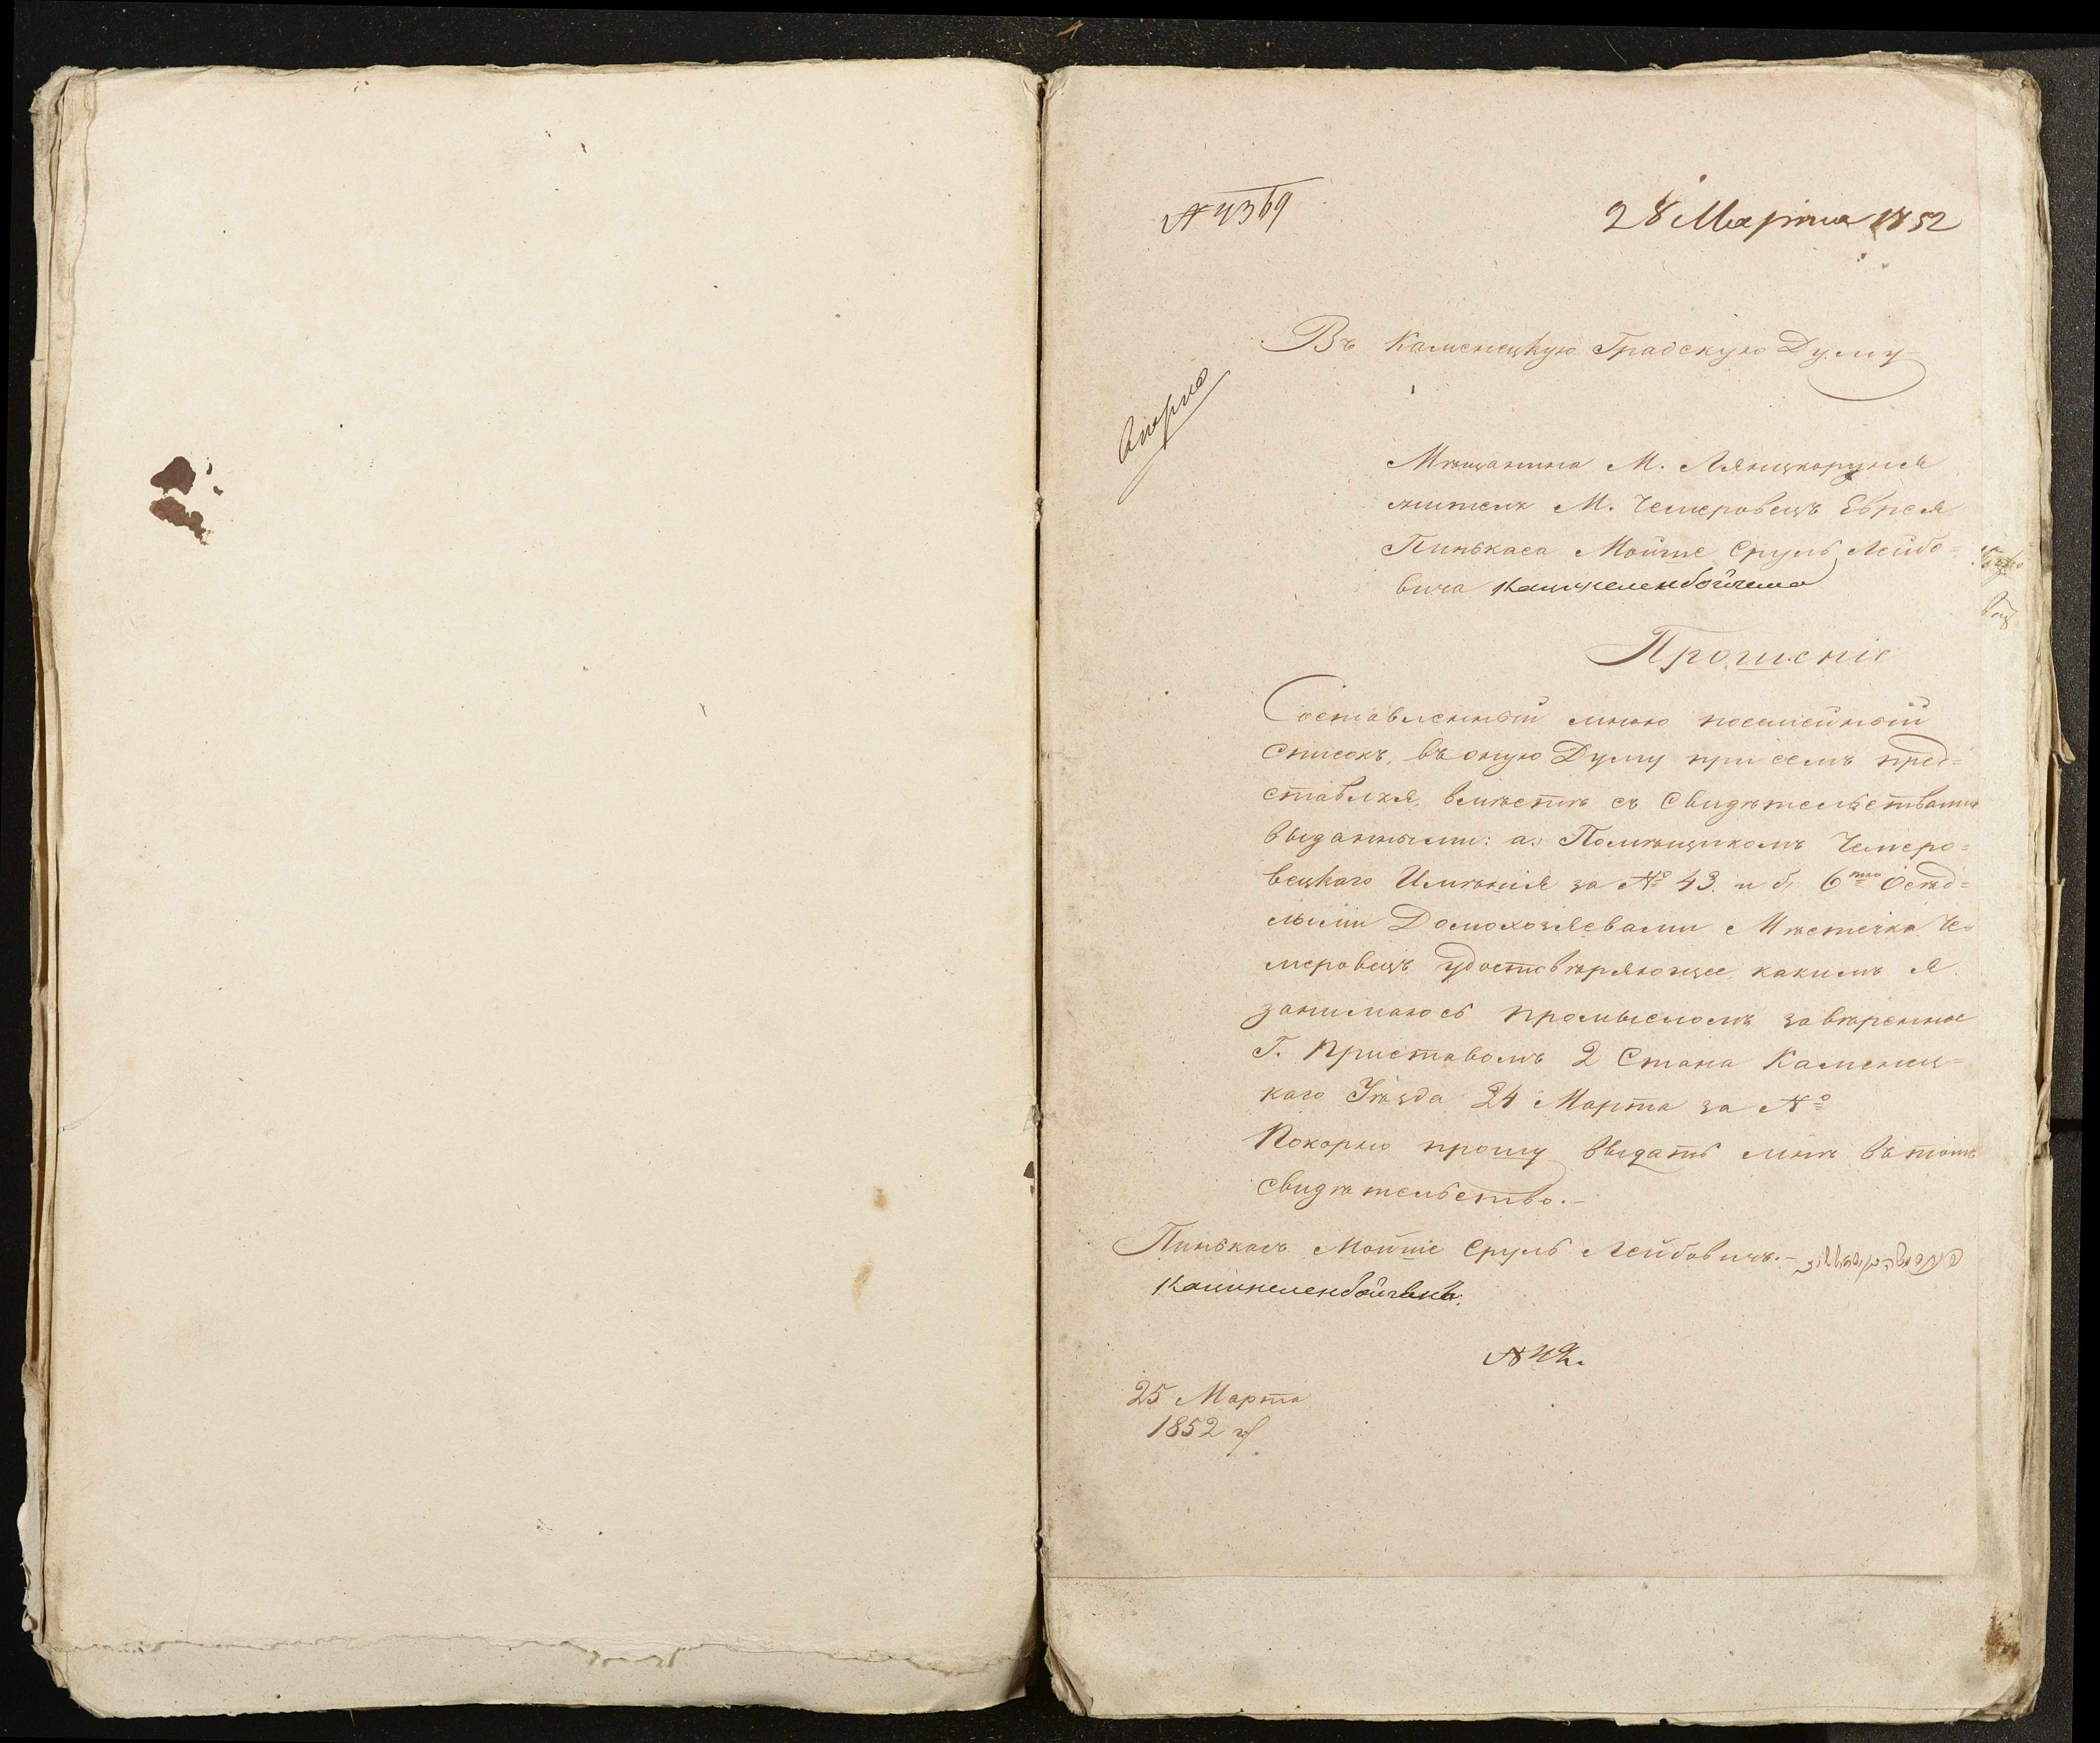 № 4369
28 Марта 1852
Въ Каменецкую Градскую Думу
Мѣщанина М. Лянцкоруня
жителя М. Чемеровецъ Еврея
Пинькаса Мойше Сруль Лейбо=
вича
Прошеніе
Составленный мною посемейный
списокъ, въ оную Думу при семъ пред=
ставляя, вмѣстѣ съ Свидѣтельствами
выданными: а. Помѣщикомъ Чемеро=
вецкаго Имѣнія за № 43. и б, 6тю Осѣд=
лыми Домохозяевами Мѣстечка Че=
меровецъ удостовѣряющее какимъ я
занимаюсь промысломъ завѣренное
Г. Приставомъ 2 Стана Каменец=
каго Уѣзда 24 Марта за №
Покорно прошу выдать мнѣ въ томъ
свидѣтельство.-
Пинькасъ Мойше Сруль Лейбовичъ.-
25 Марта
1852 г.